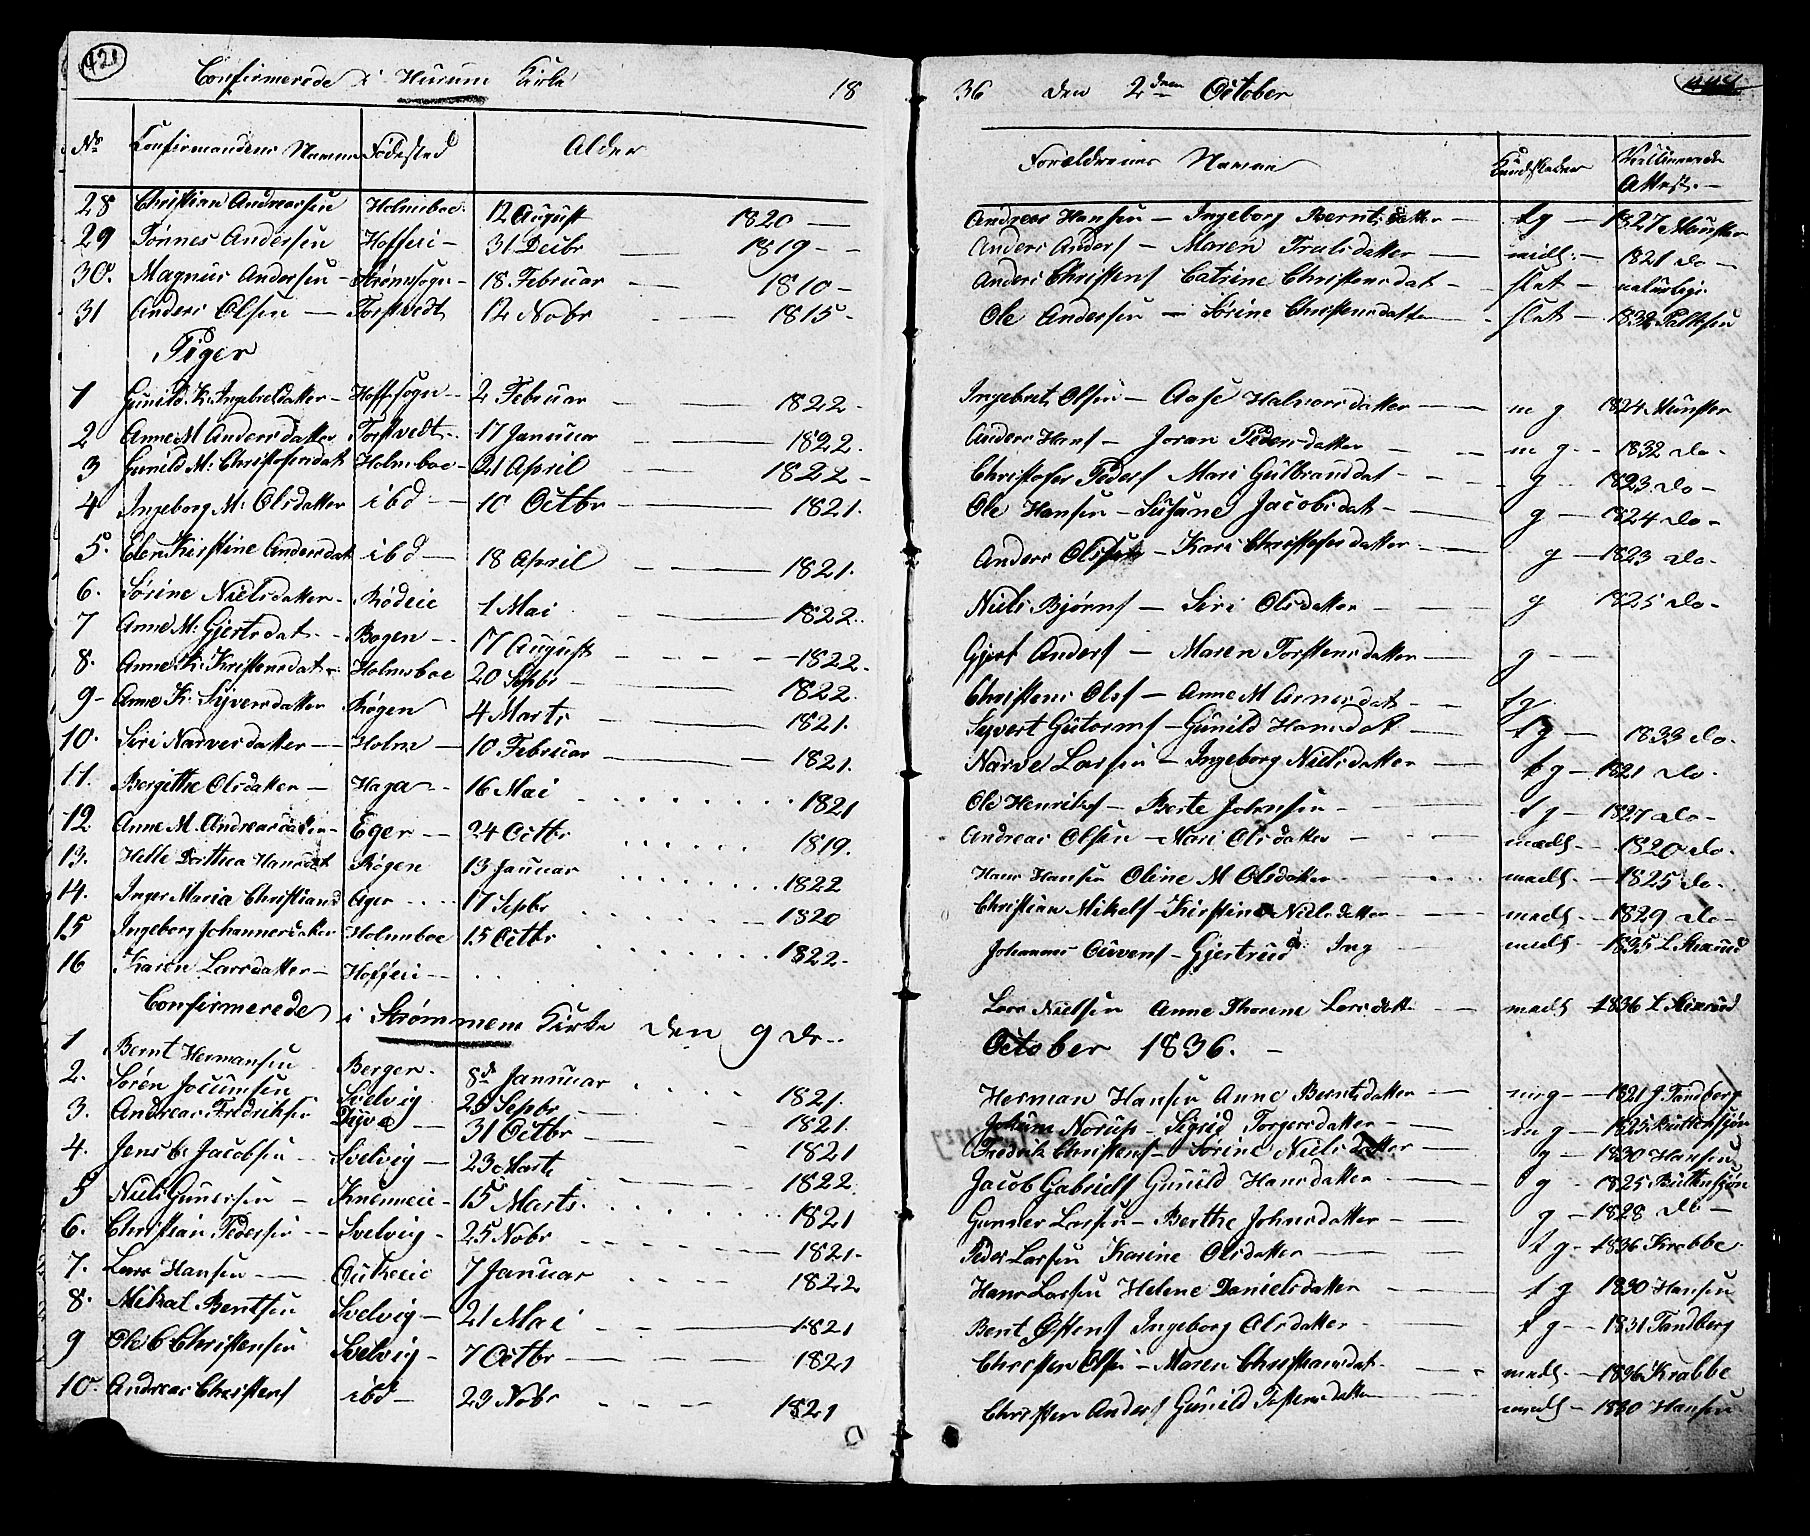 421
Confirmerede i Hurum Kirke 18 36 den 2den October
No Confirmandens Navne Födested Alder Forældrenes Navne Kundskaber Vaccinerede Attest.
28 Christian Andreassen Holmsboe 12 August 1820 — Andreas Hansen — Ingeborg Berntsdatter — tg — 1827 Münster
29 Tönnes Andersen Hofseie — 31 Decbr 1819 — Anders Anders — Maren Trulsdatter — mdls. — 1821 do —
30. Magnus Andersen — Strömsogn — 18 Februar — 1810 — Anders Christens Catrine Christensdat — slet — naturlige
31 Anders Olsen — Torstvedt 12 Nobr — 1815 — Ole Andersen — Sörine Christensdatter — slet — 1832
Piger
1 Gunild K: Ingebretsdatter — Hoffsogn — 2 Februar — 1822 — Ingebret Olsen — Aase Halvorsdatter — m g — 1824 Münster
2 Anne M Andersdatter Torstvedt — 17 Januar — 1822. Anders Hans — Joran Pedersdatter — m g — 1832 do —
3 Gunild M: Christofersdat Holmsboe — 21 April — 1822 — Christofer Peders Mari Gulbrandsdat — g — 1823 do —
4 Ingeborg M: Olsdatter ibd — 10 Octbr — 1821. Ole Hansen — Susane Jacobsdat — g — 1824 do —
5. Elen Kirstine Andersdat ibd — 18 April — 1821. Anders Olsen — Kari Christofersdatter — g — 1823 do —
6. Sörine Nielsdatter — Rödeie 1 Mai 1822. Niels Bjørns — Siri Olsdatter — g 1825 do —
7 Anne M: Gjertsdat — Bogen — 17 August — 1822. Gjert Anders — Maren Torstensdatter — g —
8. Anne K. Kristensdat — Holmsboe 20 Sepbr — 1822. Christens Ols — Anne M Arnesdat — tg
9 — Anne K: Syversdatter Røgen 4 Marts — 1821. Syvert Gutorms — Gunild Hansdat — tg — 1833 do.
10. Siri Narvesdatter — Holm — 10 Februar — 1821. Narve Larsen — Ingeborg Nielsdatter — tg — 1821 do.
11. Bergitthe Olsdatter — Haga — 16 Mai 1821 Ole Henriks — Berte Johansen — tg — 1827 do —
12 Anne M. Andreasdatter — Eger — 24 Octbr 1819. Andreas Olsen — Mari Olsdatter — mdls — 1820 do.
13. Helle Dorthea Hansdat Røgen 13 Januar 1822 Hans Hansen Oline M Olsdatter — mdls — 1825 do.
14. Inger Maria Christiansd Ager 17 Sepbr 1820 Christian Mikels — Kirstine Nielsdatter — mdls — 1829 do —
15 Ingeborg Johannesdatter Holmsboe 15 Octbr 1822 — Johannes — Gjertrud Ing mdls — 1835
16 Karen Larsdatter — Hofseie — Lars Nielsen Anne Thorine Larsdatt — mdls — 1836
Confirmerede i Strømmens Kirke den 9 de October 1836. —
1 Bernt Hermansen Berger. 8de Januar 1821. Herman Hansen Anne Berntsdatter — m g — 1821 J. Tandberg
2. Sören Jocumsen Svelvig 25 Sepbr — 1821. Jokum Norup — Sigrid Torgersdatter — m g — 1825
3. Andreas Fredriksen Dyve — 31 Octbr — 1821 Fredrik Christens — Sörine Nielsdatter — g — 1830 Hansen
4. Jens C: Jacobsen — Svelvig — 23 Marts 1822. Jacob Gabriels Gunild Hansdatter — g — 1825
5 Niels Gunersen — Knemeie — 15 Marts. 1821 Gunner Larsen — Berthe Johnsdatter — g — 1828 do —
6. Christian Pedersen — Svelvig — 25 Nobr 1821. Peder Larsen Karine Olsdatter — tg — 1836 Krabbe
7. Lars Hansen — 7 Januar 1822 Hans Larsen Helene Danielsdatter tg 1830 Hansen
8. Mikal Bentsen Svelvig — 21 Mai — 1821 Bent Østens Ingeborg Olsdatter — tg — 1831 Tandberg
9 Ole C Christensen Svelvig — 7 Octbr — 1821 Christen Olsen — Maren Christiansdat — mdls — 1836 Krabbe
10. Andreas Christens ibd — 23 Nobr 1821 Christen Anders Gunild — mdls — 1830 Hansen